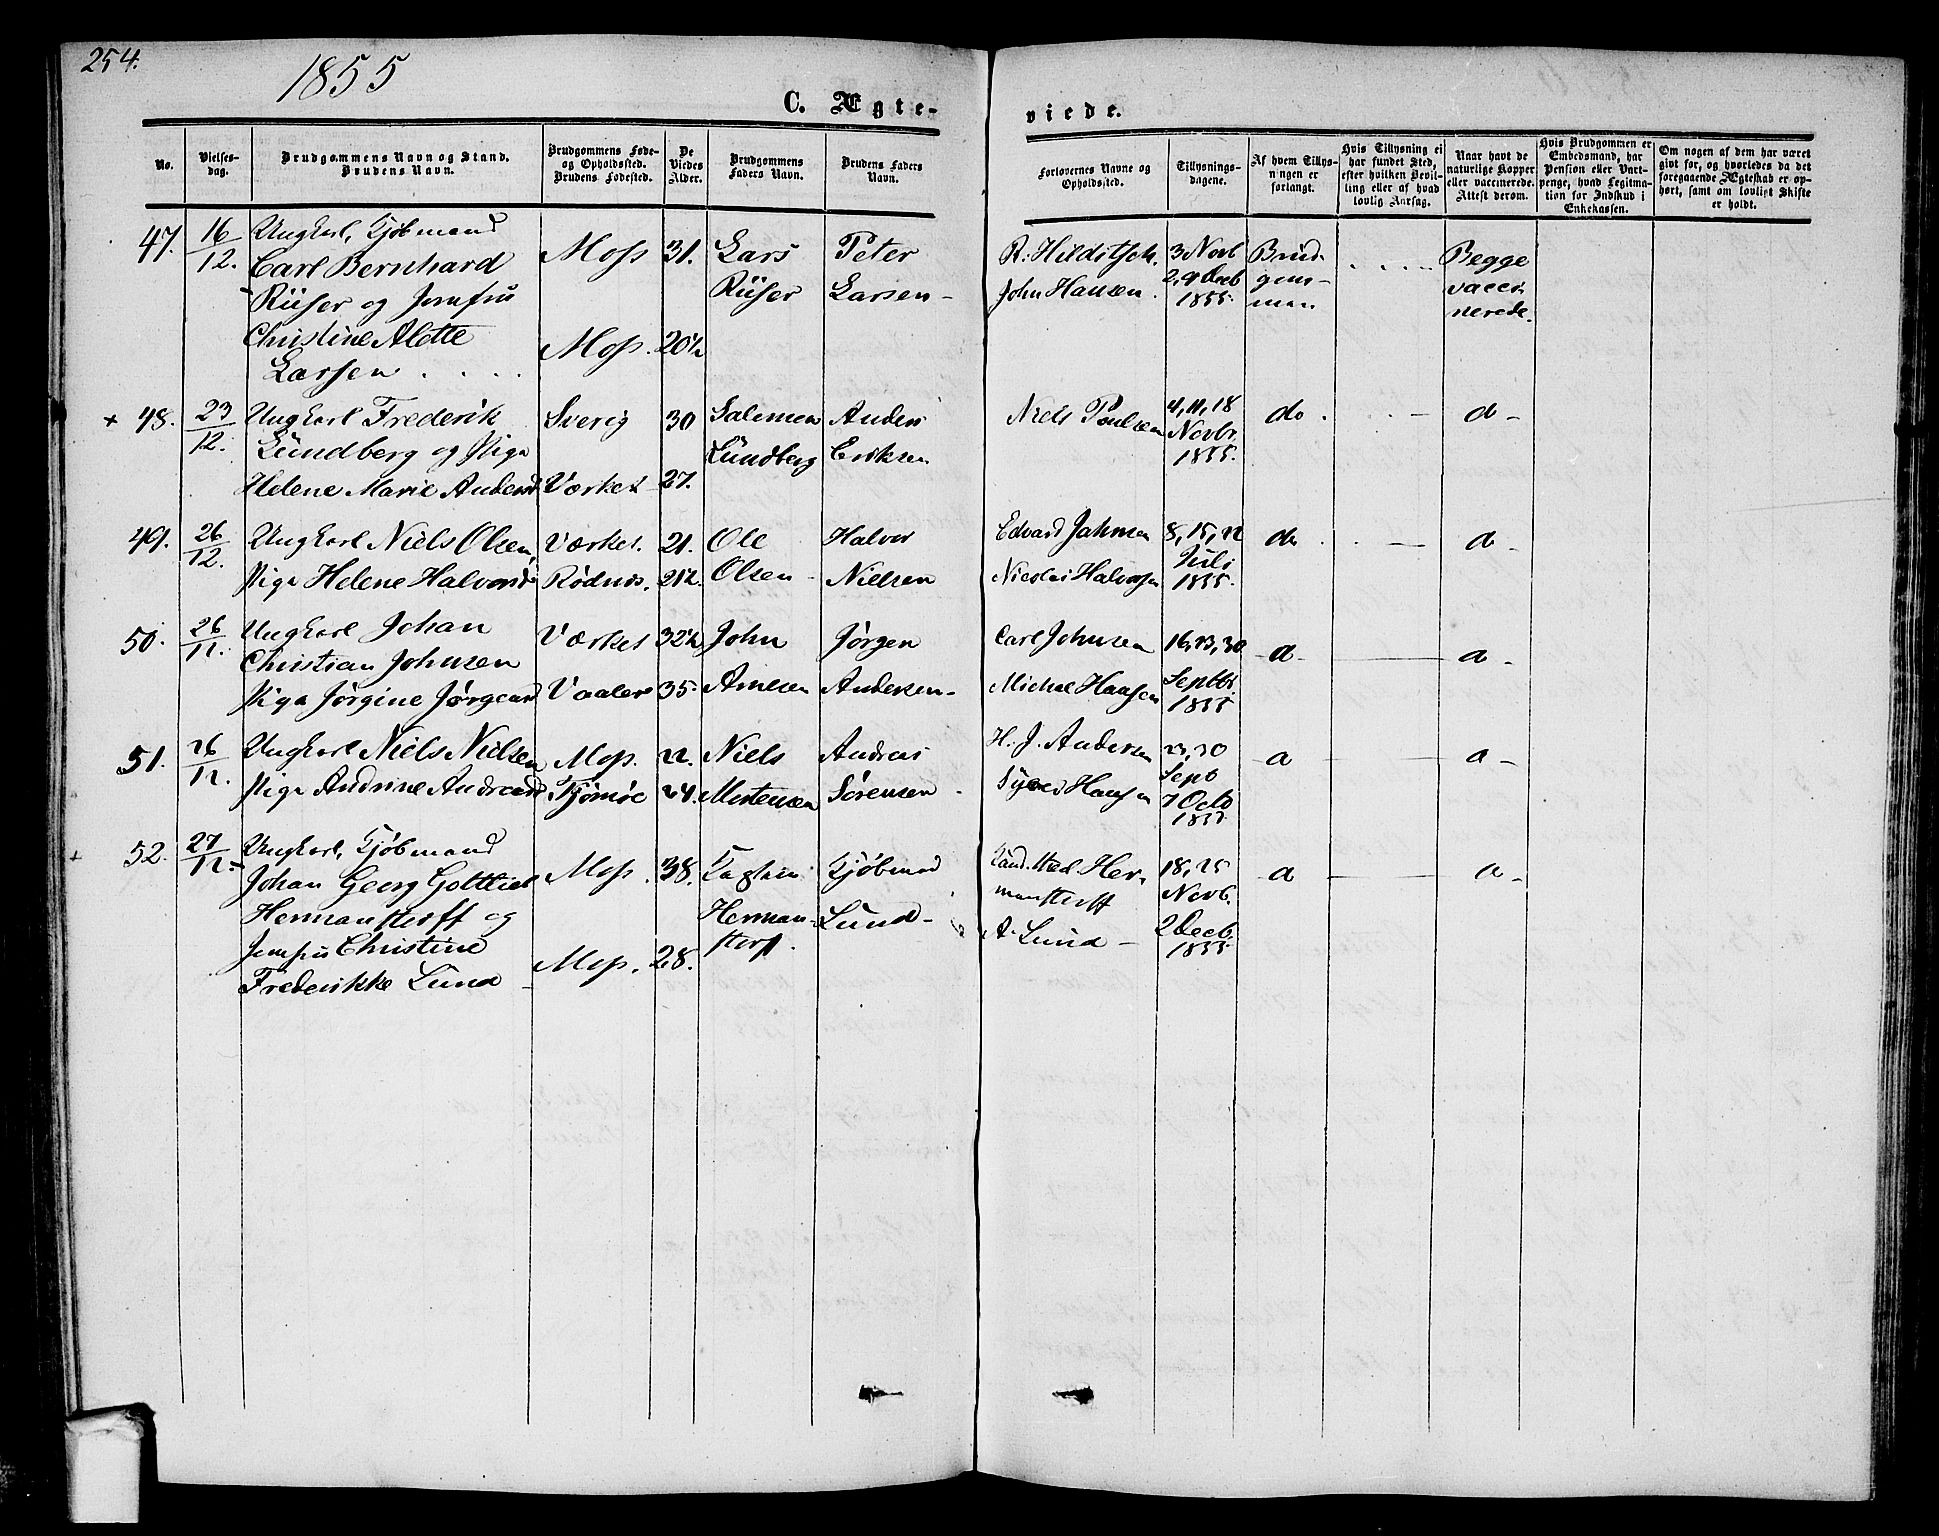 254.
1855
C. Ægte-
viede.
No.
Vielses-
dag.
Brudgommens Navn og Stand.
Brudens Navn.
Brudgommens Føde-
og Opholdssted.
Brudens Fødested.
De
Viedes
Alder.
Brudgommens
Faders Navn.
Brudens Faders
Navn.
Forlovernes Navne og
Opholdssted.
Tillysnings-
dagene.
Af hvem Tillys-
ningen er
forlangt.
Hvis Tillysning ei
har fundet Sted,
efter hvilken Bevil-
ling eller af hvad
lovlig Aarsag.
Naar havt de
naturlige Kopper
eller vaccinerede.
Attest derom.
Hvis Brudgommen er
Embedsmand, har
Pension eller Vart-
penge, hvad Legitima-
tion for Indskud i
Enkekassen.
Om nogen af dem har været
gift før, og hvorledes da det
foregaaende Ægteskab er op-
hørt, samt om lovligt Skifte
er holdt.
47. 16/12. Ungkarl, Kjøbmand Moss 31. Lars Peter R. Hilditsch. 3 Novb Brud-
Carl Bernhard Riiser Larsen- John Hansen. 2,9 Decb gom- Begge
Riiser og Jomfru 1855. men. vacci
Christine Alette Moss. 20½ nerede.
Larsen
+ 48. 23/12. Ungkarl Frederik Sverig 30 Salomon Anders Niels Poulsen 4, 11, 18 do. d-
Lundberg og Pige Lundberg Eriksen Novbr
Helene Marie Andersd Værket 27. 1855.
49. 26/12. Ungkarl Niels Olsen, Værket. 21. Ole Halvor Edvard Jahnsen 8, 15, 22 do. d-
Pige Helene Halvorsd Rødnæs. 21½. Olsen Nielsen Nicolai Halvorsen Juli
1855.
50. 26/12. Ungkarl Johan Værket 32½ John Jørgen Carl Johnsen 16, 23, 30 d- d-
Christian Johnsen
Pige Jørgine Jørgensd Vaaler 35. Arnesen Andersen- Michal Hansen Septbr.
1855
51. 26/12. Ungkarl Niels Nielsen Moss. 22. Niels Andreas H. J. Andersen 23, 30 d d-
Pige Andrine Andreasd Tjømøe 24. Mortensen Sørensen Hansen Sept
7 Octo
1855.
52. 27/12. Ungkarl, Kjøbmand Moss. 38. Kaptein Kjøbmand Cand. Med Her- 18, 25 d d-
Johan Georg Gottlieb manstorff Novb.
Hermanstorff og Herman- Lund- A. Lund - 2 Decb.
Jomfru Christine storf. 1855.
Frederikke Lund Moss. 28.